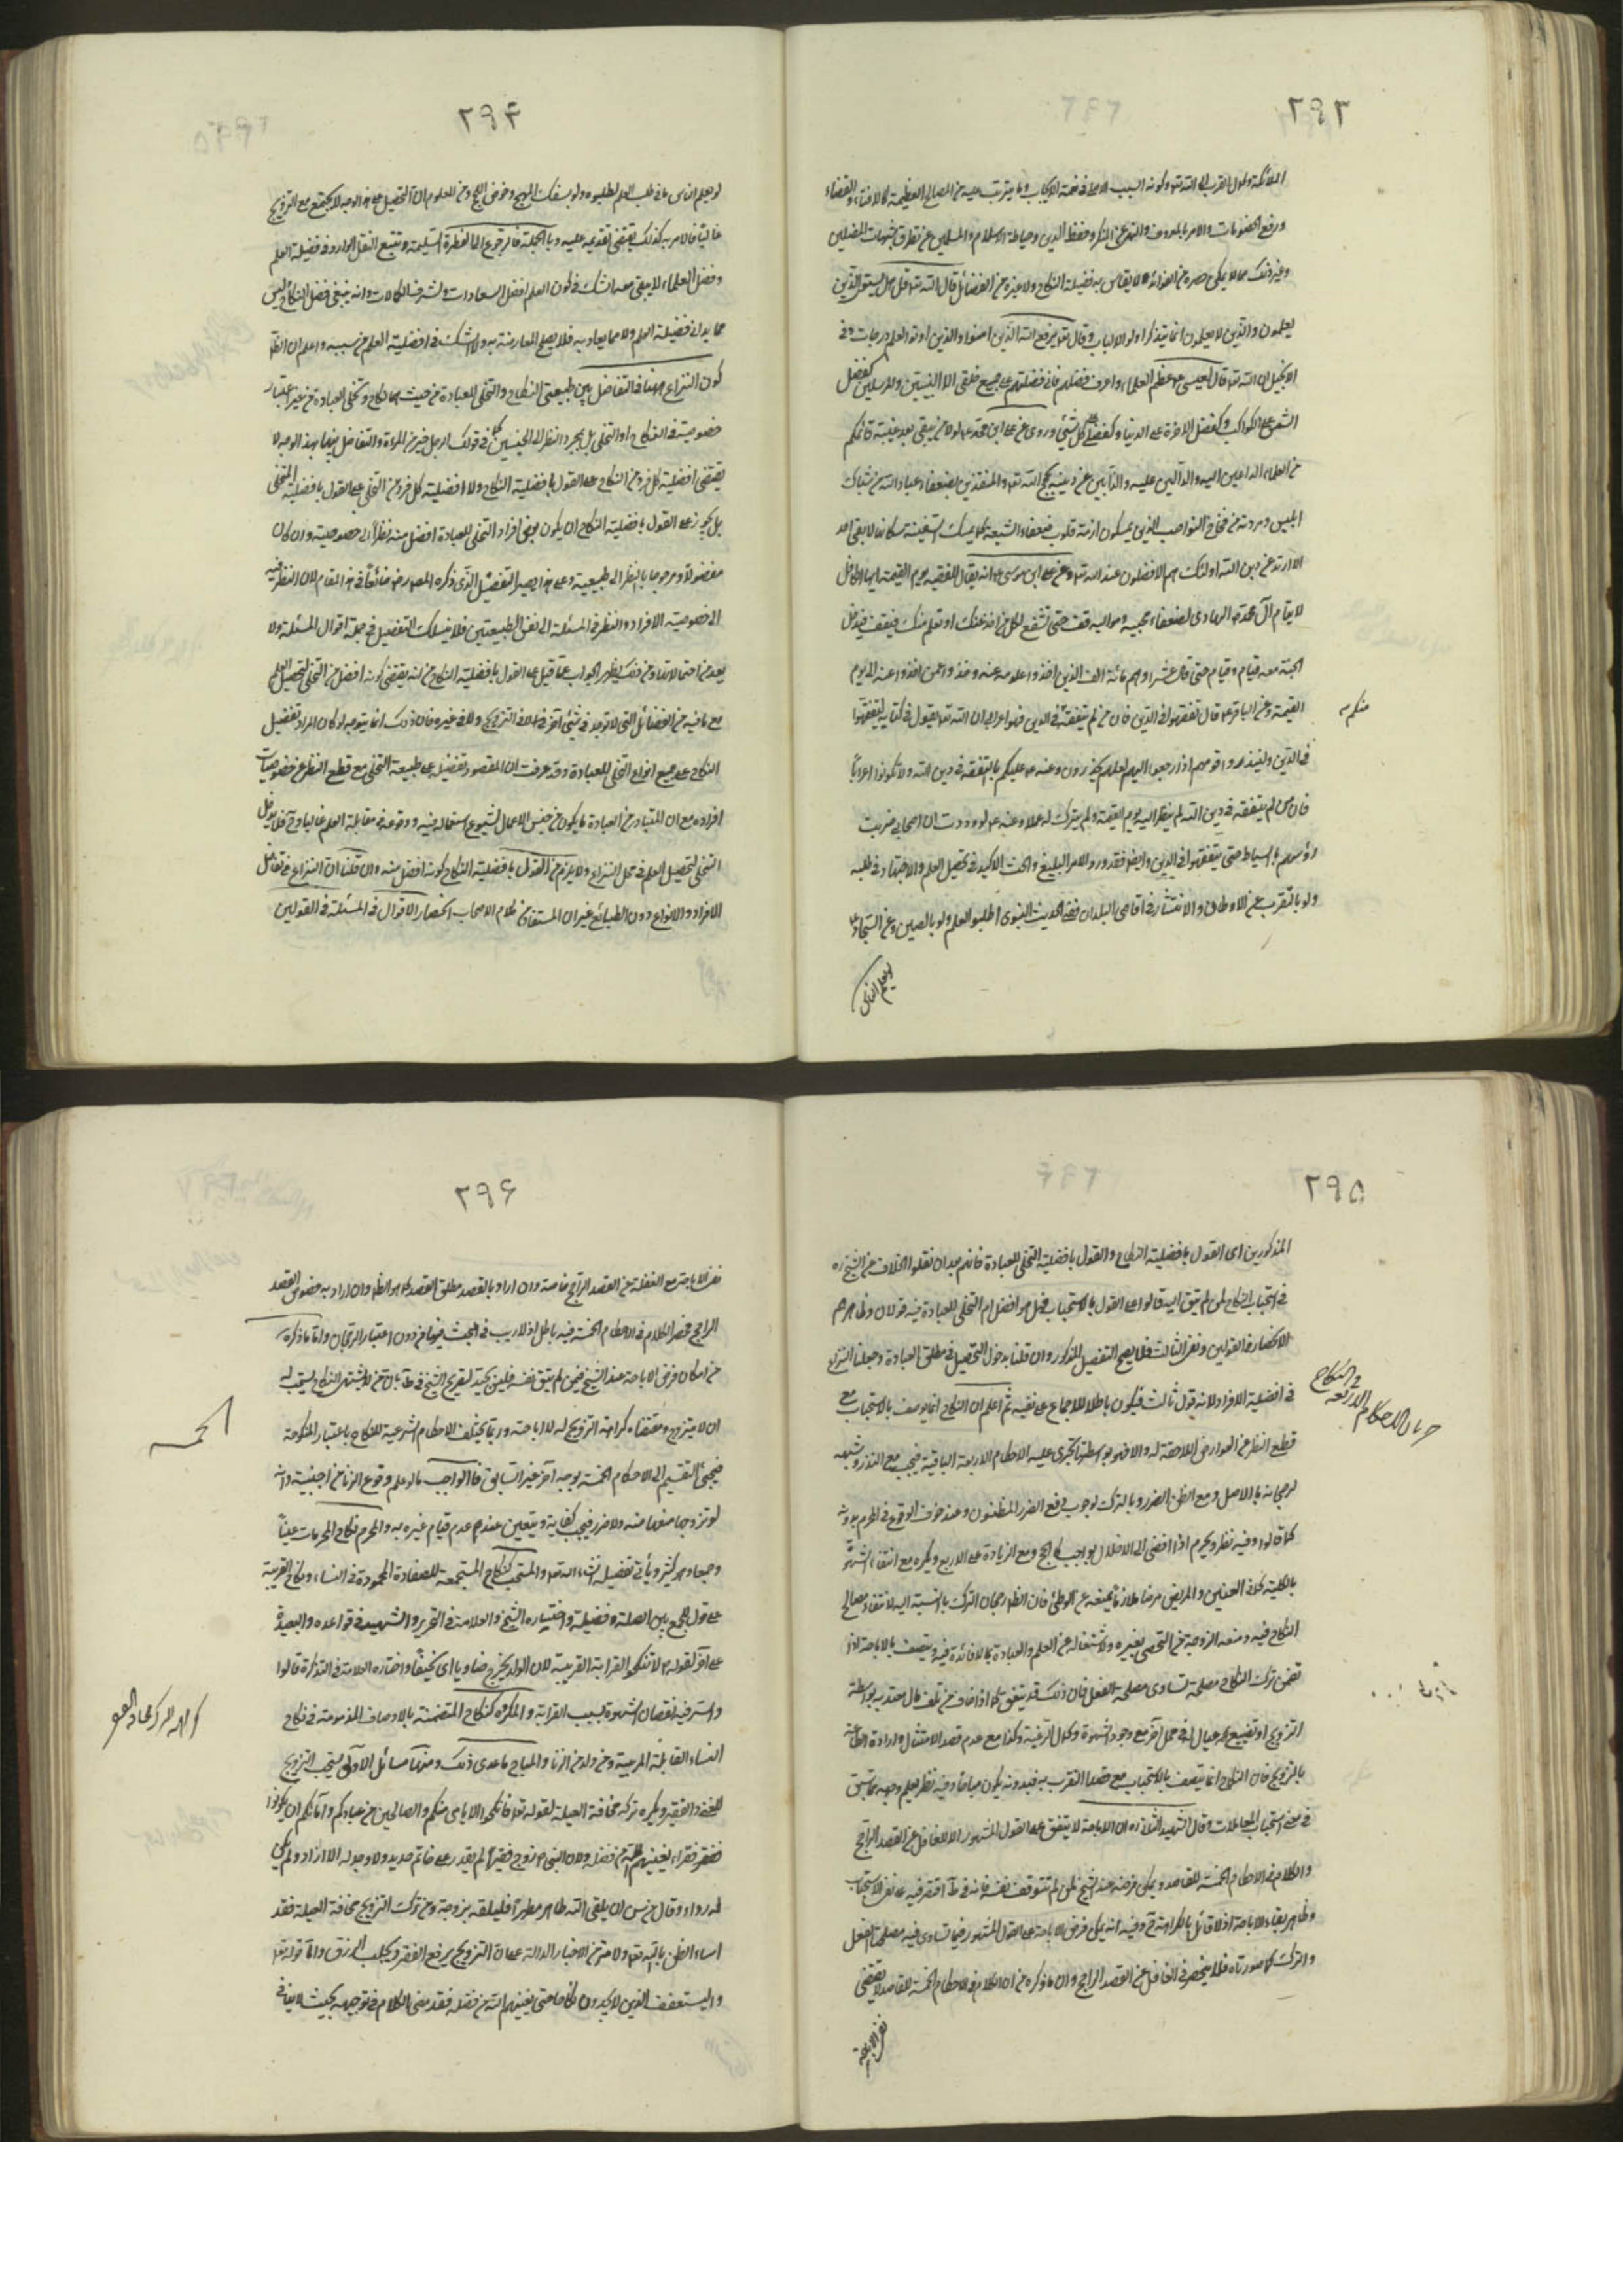 ٢٩٣
الملائكة وكون القرب الى الله تعالى وكونه السبب الاعظم في نعمة الايجاب وما يترتب عليه من المصالح العظيمة كالافتاء والقضاء
ورفع الخصومات والامر بالمعروف والنهي عن المنكر وحفظ الدين وحياطة الاسلام والمسلمين عن تطرق شبهات المضلين
وغير ذلك مما لا يمكن حصره من الفوائد لا يقاس به فضيلة النكاح ولا غيره من الفضائل قال الله تعالى قل هل يستوي الذين
يعلمون والذين لا يعلمون انما يتذكر اولو الالباب وقال تعالى يرفع الله الذين امنوا والذين اوتوا العلم درجات وفي
الانجيل ان الله تعالى قال لعيسى عظم العلماء واعرف فضلهم فاني فضلتهم على جميع خلقي الا النبيين والمرسلين كفضل
الشمس على الكواكب وكفضل الاخرة على الدنيا وكفضلي على كل شيء وروى عن علي ابن محمد لولا من يبقى بعد غيبة قائمكم
من العلماء الداعين اليه والدالين عليه والذابين عن دينه بحجج الله تعالى والمنقذين لضعفاء عباد الله من شباك
ابليس ومردته من فخاخ النواصب الذين يمسكون ازمة قلوب ضعفاء الشيعة كما يمسك السفينة سكانها لا بقى احد
الا ارتد عن دين الله اولئك هم الافضلون عند الله تعالى وعن علي ابن موسى انه يقال للفقيه يوم القيمة ايها الكافل
لايتام آل محمد الهادي لضعفاء محبيه ومواليه قف حتى تشفع لكل من اخذ عنك او تعلم منك فيقف فيدخل
الجنة معه فيام وفيام حتى قال عشرا وهم مائة الف الذين اخذوا علومه عنه واخذوا عمن اخذوا عنه الى يوم
القيمة وعن الباقر قال تفقهوا في الدين فان من لم يتفقه في الدين فهو اعرابي ان الله تعالى يقول في كتابه ليتفقهوا
منكم
في الدين ولينذروا قومهم اذا رجعوا اليهم لعلهم يحذرون وعنه عليكم بالتفقه في دين الله ولا تكونوا اعرابا
فان من لم يتفقه في دين الله لم ينظر اليه يوم القيمة ولم يترك له عملا وعنه لوددت ان اصحابي ضربت
رؤسهم بالسياط حتى يتفقهوا في الدين وايضا فقد ورد الامر البليغ والحث الاكيد في تحصيل العلم والاجتهاد في طلبه
ولو بالتقرب عن الاوطان والانتشار في اقاصي البلدان ففي الحديث النبوي اطلبوا العلم ولو بالصين وعن السجاد
لو يعلم الناس
٢٩٤
لو يعلم الناس ما في طلب العلم لطلبوه ولو بسفك المهج وخوض اللجج ومن المعلوم ان التحصيل على هذا الوجه لا يجتمع مع التزويج
غالبا فالامر به كذلك يقتضي تقديمه عليه وبالجملة فالرجوع الى الفطرة السليمة وتتبع النقل الوارد في فضيلة العلم
وفضل العلماء لا يبقى معه شك في كون العلم افضل السعادات واشرف الكمالات وانه ينبغي فضل النكاح ليس
مما يداني فضيلة العلم ولا مما يعادبه فلا يصلح للمعارضة به ولا شك في افضلية العلم من سببه واعلم ان الظاهر
كون النزاع ههنا في التفاضل بين طبيعتي النكاح والتخلي للعبادة من حيث هما نكاح وتخلي للعبادة من غير اعتبار
خصوصية في النكاح او التخلي بل بمجرد النظر الى الجنسين كما في قولك الرجل خير من المرءة والتفاضل بينهما بهذا الوجه لا
يقتضي افضلية كل فرد من النكاح على القول بافضلية النكاح ولا افضلية كل فرد من التخلي على القول بافضلية التخلي
بل يجوز على القول بافضلية النكاح ان يكون بعض افراد التخلي للعبادة افضل منه نظرا الى خصوصية وان كان
مفضولا ومرجوحا بالنظر الى طبيعته وعلى هذا يصير التفصيل الذي ذكره المصر ضائعا في هذا المقام لان النظر فيه
الى خصوصية الافراد والنظر في المسئلة الى نفس الطبيعتين فلا ينسلك التفصيل في جملة اقوال المسئلة ولا
يعد من احتمالاتها ومن ذلك يظهر الجواب عما قيل على القول بافضلية النكاح من انه يقتضي كونه افضل من التخلي لتحصيل العلم
مع ما فيه من الفضائل التي لا توجد في شيء آخر لا في التزويج ولا في غيره فان ذلك انما يتوجه لو كان المراد تفضيل
النكاح على جميع انواع التخلي للعبادة وقد عرفت ان المقصود تفضيله على طبيعة التخلي مع قطع النظر عن خصوصيات
افراده مع ان المتبادر من العبادة ما يكون من جنس الاعمال لشيوع استعماله فيه ووقوعه في مقابلة العلم غالبا وح فلا يدخل
التخلي لتحصيل العلم في محل النزاع ولا يلزم من القول بافضلية النكاح كونه افضل منه وان قلنا ان النزاع في تفاضل
الافراد والانواع دون الطبائع غير ان المستفاد من كلام الاصحاب انحصار الاقوال في المسئلة في القولين
٢٩٥
المذكورين اى القول بافضلية النكاح والقول بافضلية التخلي للعبادة فانهم بعد ان نقلوا الخلاف عن الشيخ ره
في استحباب النكاح لمن لم يتق اليه قالوا على القول بالاستحباب فهل هو افضل ام التخلي للعبادة فيه قولان وظاهرهم
الانحصار في القولين ونفى الثالث فلا يصح التفصيل المذكور وان قلنا بدخول التحصيل في مطلق العبادة وجعلنا النزاع
في افضلية الافراد لانه قول ثالث فيكون باطلا للاجماع على نفيه ثم اعلم ان النكاح انما يوصف بالاستحباب مع
في النكاح
جريان الاحكام الاربعة
قطع النظر عن العوارض اللاحقة له والا فهو بواسطتها تجري عليه الاحكام الاربعة الباقية فيجب مع النذر وشبهه
لرجحانه بالاصل ومع الظن الضرر بالترك لوجوب دفع الضرر المظنون وعند خوف الوقوع في المحرم بدونه
كما قالوا وفيه نظر ويحرم اذا افضى الى الاخلال بواجب كالحج ومع الزيادة على الاربع ويكره مع انتفاء الشهوة
بالكلية كما في العنين والمريض مرضا ملازما يمنعه عن الوطئ فان الظاهر رجحان الترك بالنسبة اليه لانتفاء مصالح
النكاح فيه ومنعه الزوجة من التحصن بغيره ولاشتغاله عن العلم والعبادة بما لا فائدة فيه ويتصف بالاباحة اذا
تضمن ترك النكاح مصلحة تساوي مصلحة الفعل فان ذلك قد يتفق كما اذا خاف من تلف مال معتد به بواسطة
التزويج او تضييع عيال له في محل آخر مع وجود الشهوة وكمال الرغبة وكذا مع عدم قصد الامتثال وارادة الطاعة
بالتزويج فان النكاح انما يتصف بالاستحباب مع قصد التقرب به فبدونه يكون مباحا وفيه نظر يعلم وجهه مما سبق
في معنى استحباب المعاملات وقال الشهيد الثاني ره ان الاباحة لا يتفق على القول المشهور الا للغافل عن القصد الراجح
والكلام في الاحكام الخمسة للقاصد ويمكن فرضه عند الشيخ لمن لم تتوقف نفسه فانه في ط اقتصر فيه على نفي الاستحباب
وظاهره بقاء الاباحة اذ لا قائل بالكراهة ح وفيه انه يمكن فرض الاباحة على القول المشهور فيما تساوى فيه مصلحتا الفعل
والترك كما صورناه فلا ينحصر في الغافل عن القصد الراجح وان ما ذكره من ان الكلام في الاحكام الخمسة للقاصد لا يقتضي
نفي الاباحة
٢٩٦
نفي الاباحة مع الغفلة عن القصد الراجح خاصة وان اراد بالقصد مطلق القصد كما هو الظاهر وان اراد به خصوص القصد
الراجح فحصر الكلام في الاحكام الخمسة فيه باطل اذ لا ريب في البحث فيها من دون اعتبار الرجحان واما ما ذكره
من امكان فرض الاباحة عند الشيخ فيمن لم يتق نفسه فليس بجيد لتصريح الشيخ في ط بان من لا يشتهي النكاح يستحب له
ان لا يتزوج ومقتضاه كراهة التزويج له لا اباحته وربما يختلف الاحكام الشرعية للنكاح باعتبار المنكوحة
فيجئ التقسيم الى الاحكام الخمسة بوجه آخر غير السابق فالواجب ما لو علم وقوع الزنا من اجنبية وانه
لو تزوجها منعها منه ولا ضرر فيجب كفاية ويتعين عند عدم قيام غيره به والمحرم نكاح المحرمات عينا
وجمعا وهو كثير ويأتي تفصيله انشاء الله تعالى والمستحب كنكاح المستجمعة للصفات المحمودة في النساء ونكاح القريبة
على قول للجمع بين الصلة وفضيلة واختياره الشيخ والعلامة في التحرير والشهيد في قواعده والبعيدة
على آخر لقوله لا تنكحوا القرابة القريبة لان الولد يخرج ضاويا اى نحيفا واختاره العلامة في التذكرة قالوا
والسر فيه نقصان الشهوة بسبب القرابة والمكروه كنكاح المتضمنة بالاوصاف المذمومة في نكاح
النساء القابلة المربية ومن ولد من الزنا والمباح ما عدى ذلك وههنا مسائل الاولى يستحب التزويج
للغني والفقير ويكره تركه مخافة العيلة لقوله تعالى فانكحوا الايامى منكم والصالحين من عبادكم وامائكم ان يكونوا
فقراء يغنيهم الله من فضله ولان النبي زوج فقيرا لم يقدر على خاتم حديد ولا وجد له الا ازار ولم يكن
له رداء وقال من سره ان يلقى الله طاهرا مطهرا فليلقه بزوجة ومن ترك التزويج مخافة العيلة فقد
اساء الظن بالله تعالى ولا مر من الاخبار الدالة على ان التزويج يرفع الفقر ويجلب الرزق واما قوله تعالى
وليستعفف الذين لا يجدون نكاحا حتى يغنيهم الله من فضله فقد مضى الكلام في توجيهه بحيث لا ينافي